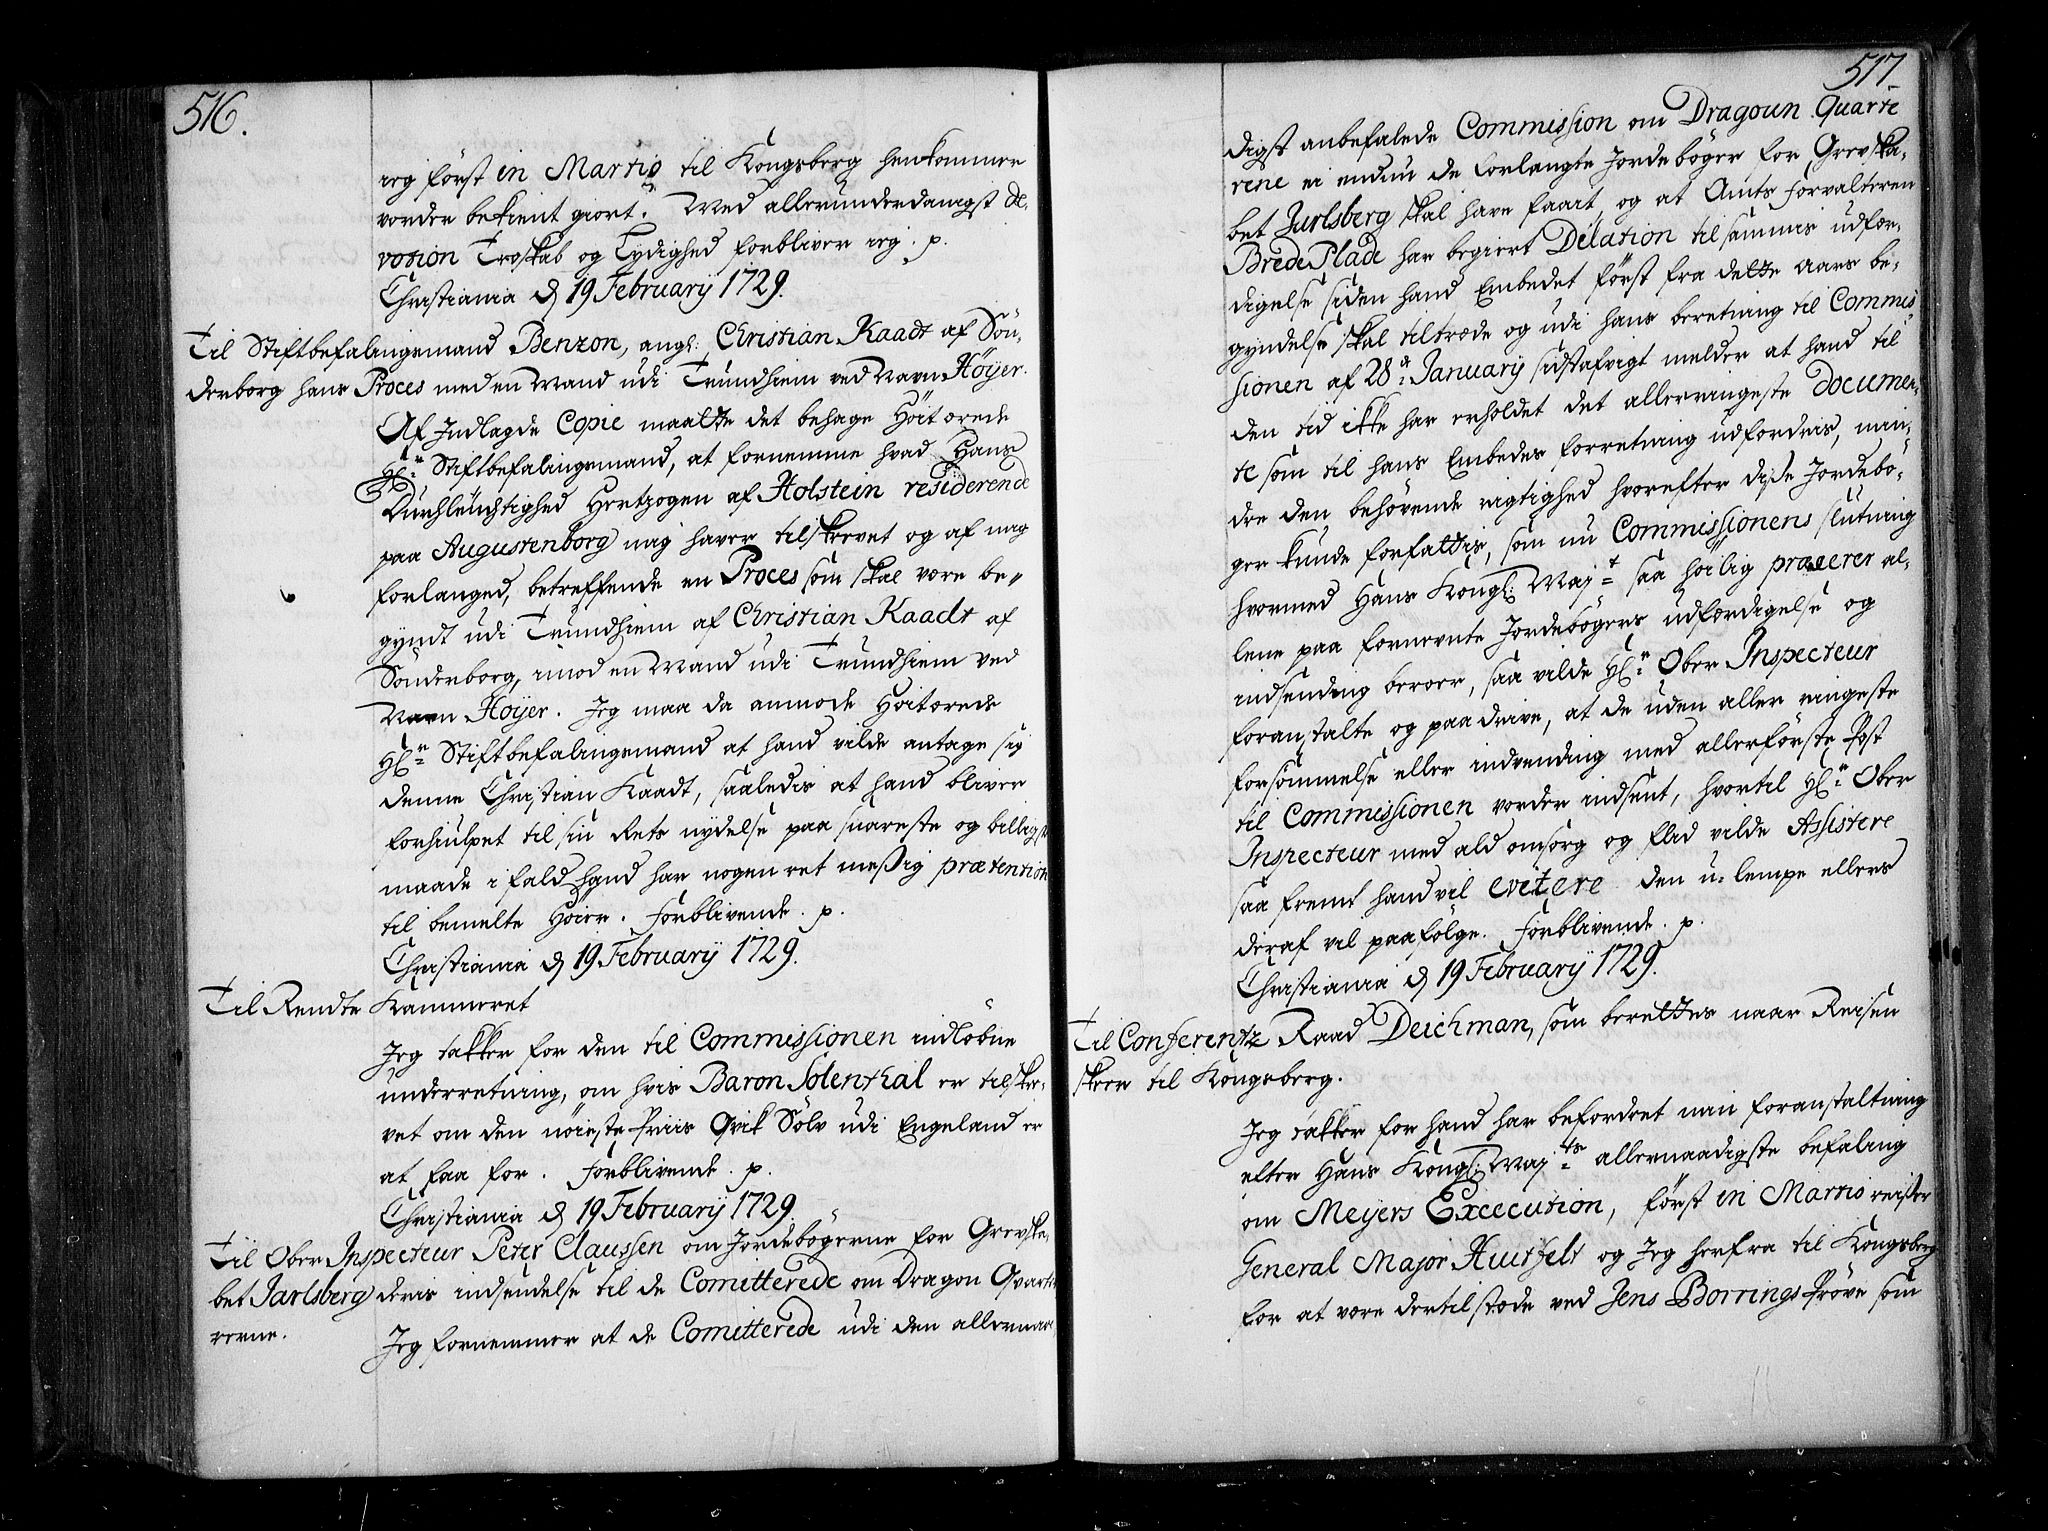 516.
ieg först in Martio til Kongsberg henkommer
vorder bekient giort. Med allerunderdanigst de„
votion Troskab og Lydighed forbliver ieg. p.
Christiania d 19 February 1729.
Til Stiftbefalingsmand Benzon, angl: Christian Kaadt af Sön„
derborg hans Proces med en Mand udi Trundhiem ved Navn Höyer.
Af Indlagde Copie maatte det behage Höitærede
Hl:r Stiftbefalingsmand, at fornemme hvad Hans
Durchleuchtighed Hertzogen af Holstein residerende
paa Augustenborg mig haver tilskrevet og af mig
forlanged, betreffende en Proces som skal være be„
gyndt udi Trundhiem af Christian Kaadt af
Sönderborg, imod en Mand udi Trundhiem ved
Navn Höyer. Jeg maa da anmode Höitærede
Hl:r Stiftbefalingsmand at hand vilde antage sig
denne Christian Kaadt, saaledis at hand bliver
forhiulpet til sin Rets nydelse paa snareste og billigste
maade i fald hand har nogen ret mesßig prætention
til bemelte Höier. Forblivende. p.
Christiania d 19 February 1729.
Til Rendte Kammeret
Jeg takker for den til Commissionen indlöbne
underretning, om hvis Baron Sölenthal er tilskre„
vet om den nöieste Priis Qvik Sölv udi Engeland er
at faa for. Forblivende. p.
Christiania d 19 February 1729.
Til Ober Inspecteur Peter Claussen om Jordebögerne for Grevska„
bet Jarlsberg deris indsendelse til de Comitterede om Dragon Qvarte
rerne.
Jeg fornemmer at de Comitterede udi den allernaa„
517.
digst anbefalede Commission om Dragoun Quarte
rene ei endnu de forlangte Jordebögger for Grevska„
bet Jarlsberg skal have faaet og at Amts Forvalteren
Brede Plade har begiert Dilation til sammis udfær„
digelse siden hand Embedet först fra dette Aars be„
gyndelse skal tiltræde og udi hans beretning til Commis„
sionen af 28:a January sidstafvigt melder at hand til
den tid ikke har erholdet det allerringeste Documen„
te som til hans Embedes forretning udfordris, min„
dre den behövende rigtighed hvorefter disße Jordebö„
ger kunde forfattis, som nu Commissionens slutning
hvormed Hans Kongl: Maj:t saa höilig præerer al„
lene paa fornevnte Jordebögers udfærdigelse og
indsending beroer, saa vilde Hl:r Ober Inspecteur
foranstalte og paadrive, at de uden aller ringeste
forsömmelse eller indvending med allerförste Post
til Commissionen vorder indsent, hvortil Hl:r Ober
Inspecteur med ald omsorg og flid vilde Assistere
saa fremt hand vil evitere den u:lempe ellers
deraf vil paafölge. Forblivende. p.
Christiania d 19 February 1729.
Til Conferentz Raad Deichman, som berettes naar Reisen
skeer til Kongsberg.
Jeg takker for hand har befordret min foranstaltning
efter Hans Kongl: Maj:ts allernaadigste befaling
om Meyers Excecution, först in Martio reisßer
General Major Huitfelt og Jeg herfra til Kongsberg
for at være dertilstæde ved Jens Borrings Pröve som